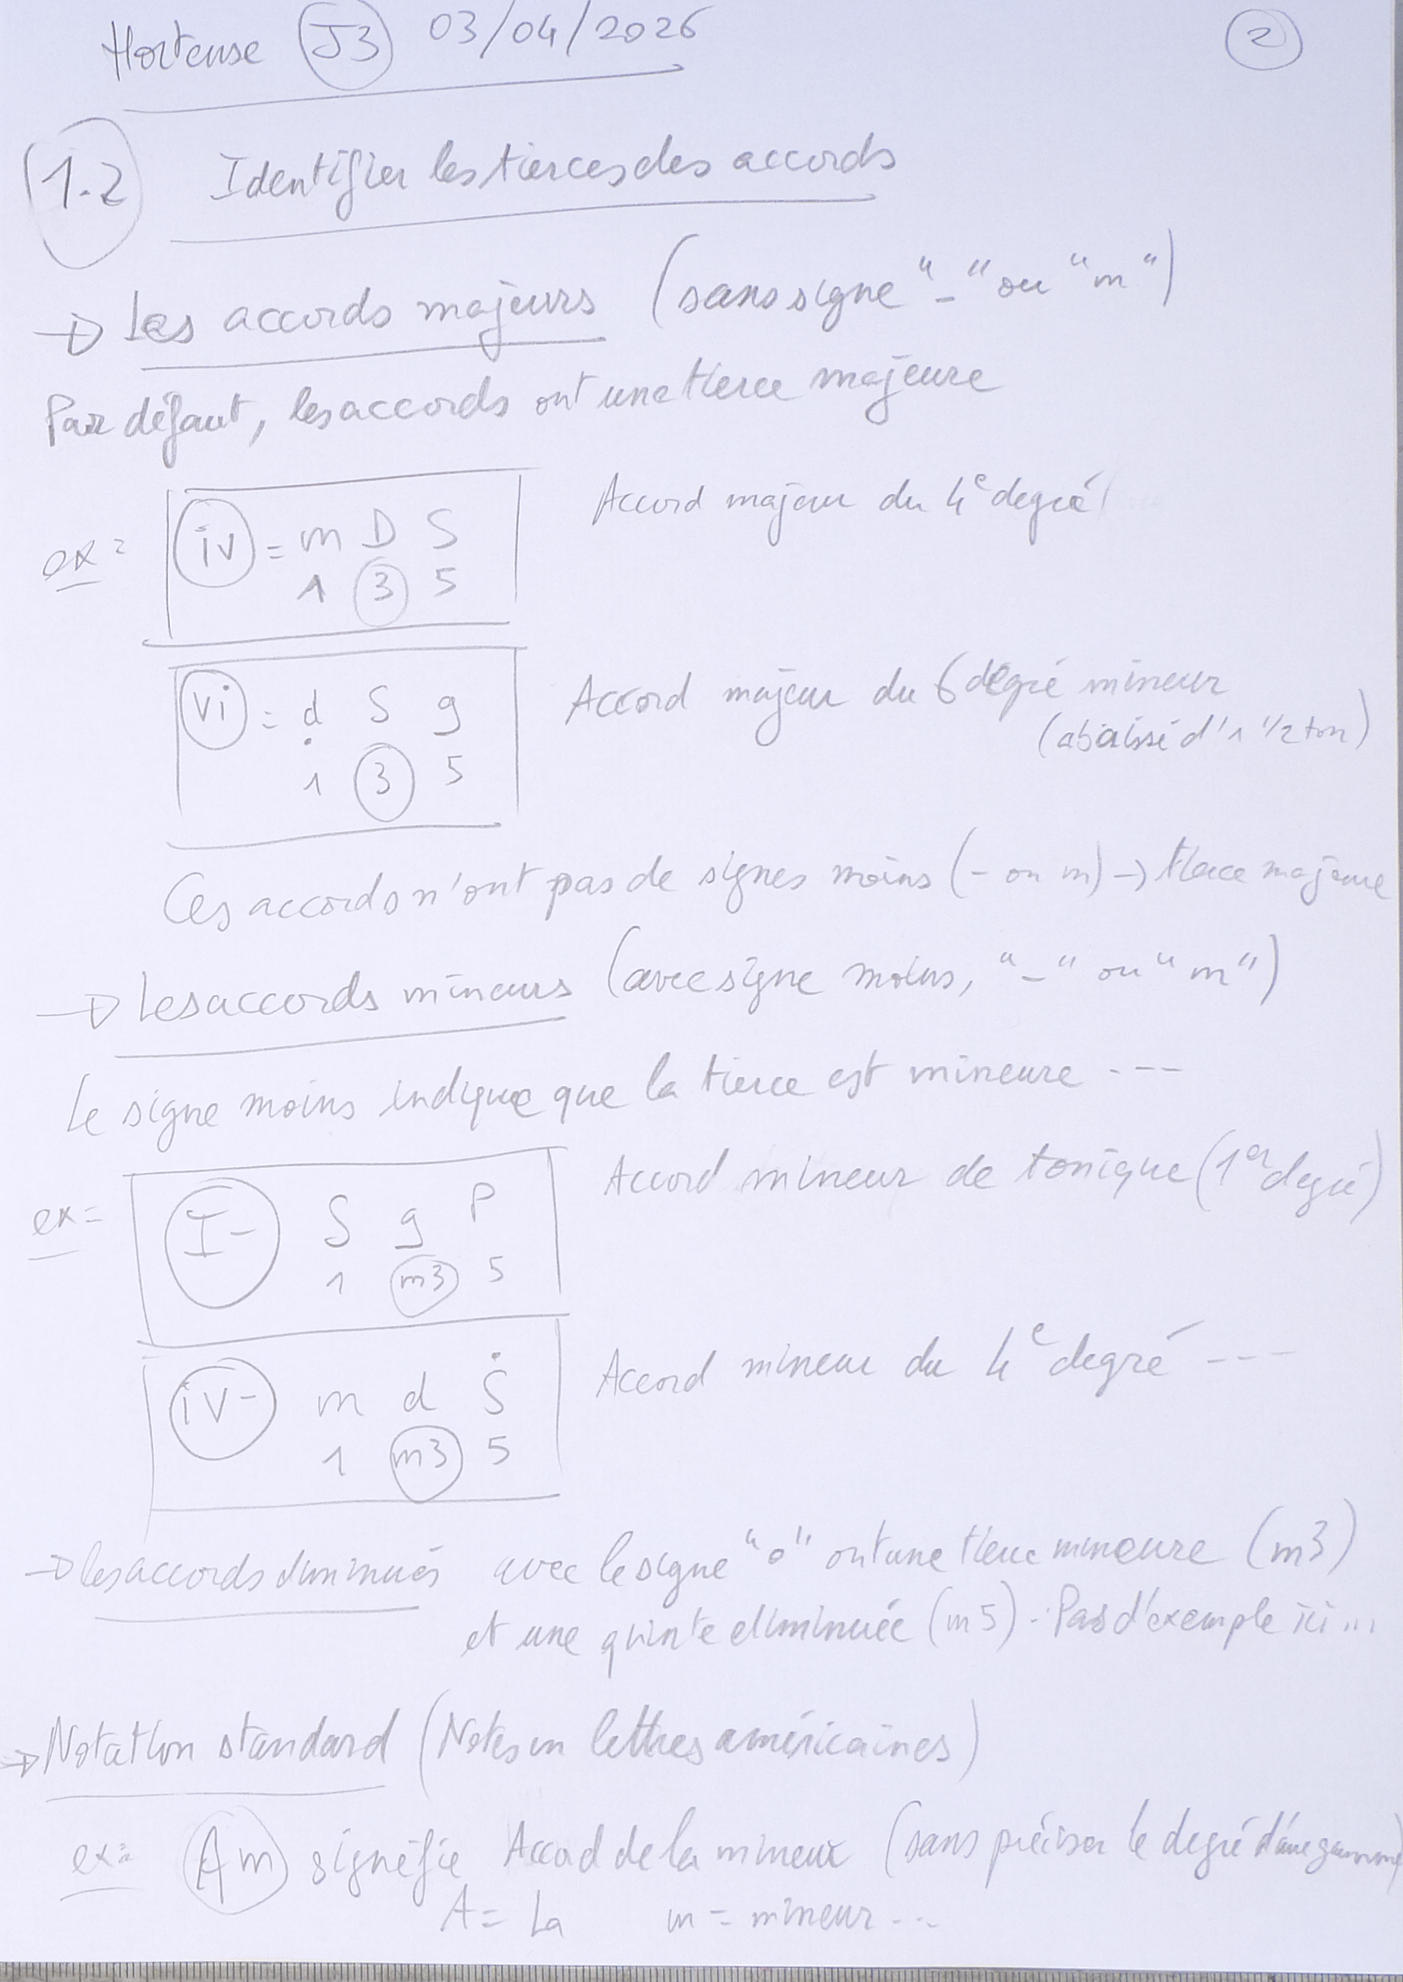 Hortense J3 03/04/2026
2
1.2 Identifier les tierces des accords
→ Les accords majeurs (sans signe "-" ou "m")
Par défaut, les accords ont une tierce majeure
ex = iv = m D S Accord majeur du 4e degré
1 3 5
vi = ḍ S g Accord majeur du 6 degré mineur
(abaissé d'1 1/2 ton)
1 3 5
Ces accords n'ont pas de signes moins (- ou m) → tierce majeure
→ Les accords mineurs (avec signe moins, "-" ou "m")
Le signe moins indique que la tierce est mineure ---
ex = I- S g P Accord mineur de tonique (1er degré)
1 m3 5
iv- m d Ṡ Accord mineur du 4e degré ---
1 m3 5
→ les accords diminués avec le signe "o" ont une tierce mineure (m3)
et une quinte diminuée (m5). Pas d'exemple ici ...
→ Notation standard (Notes en lettres américaines)
ex = Am signifie Accord de la mineur (sans préciser le degré d'une gamme)
A = La m = mineur ...